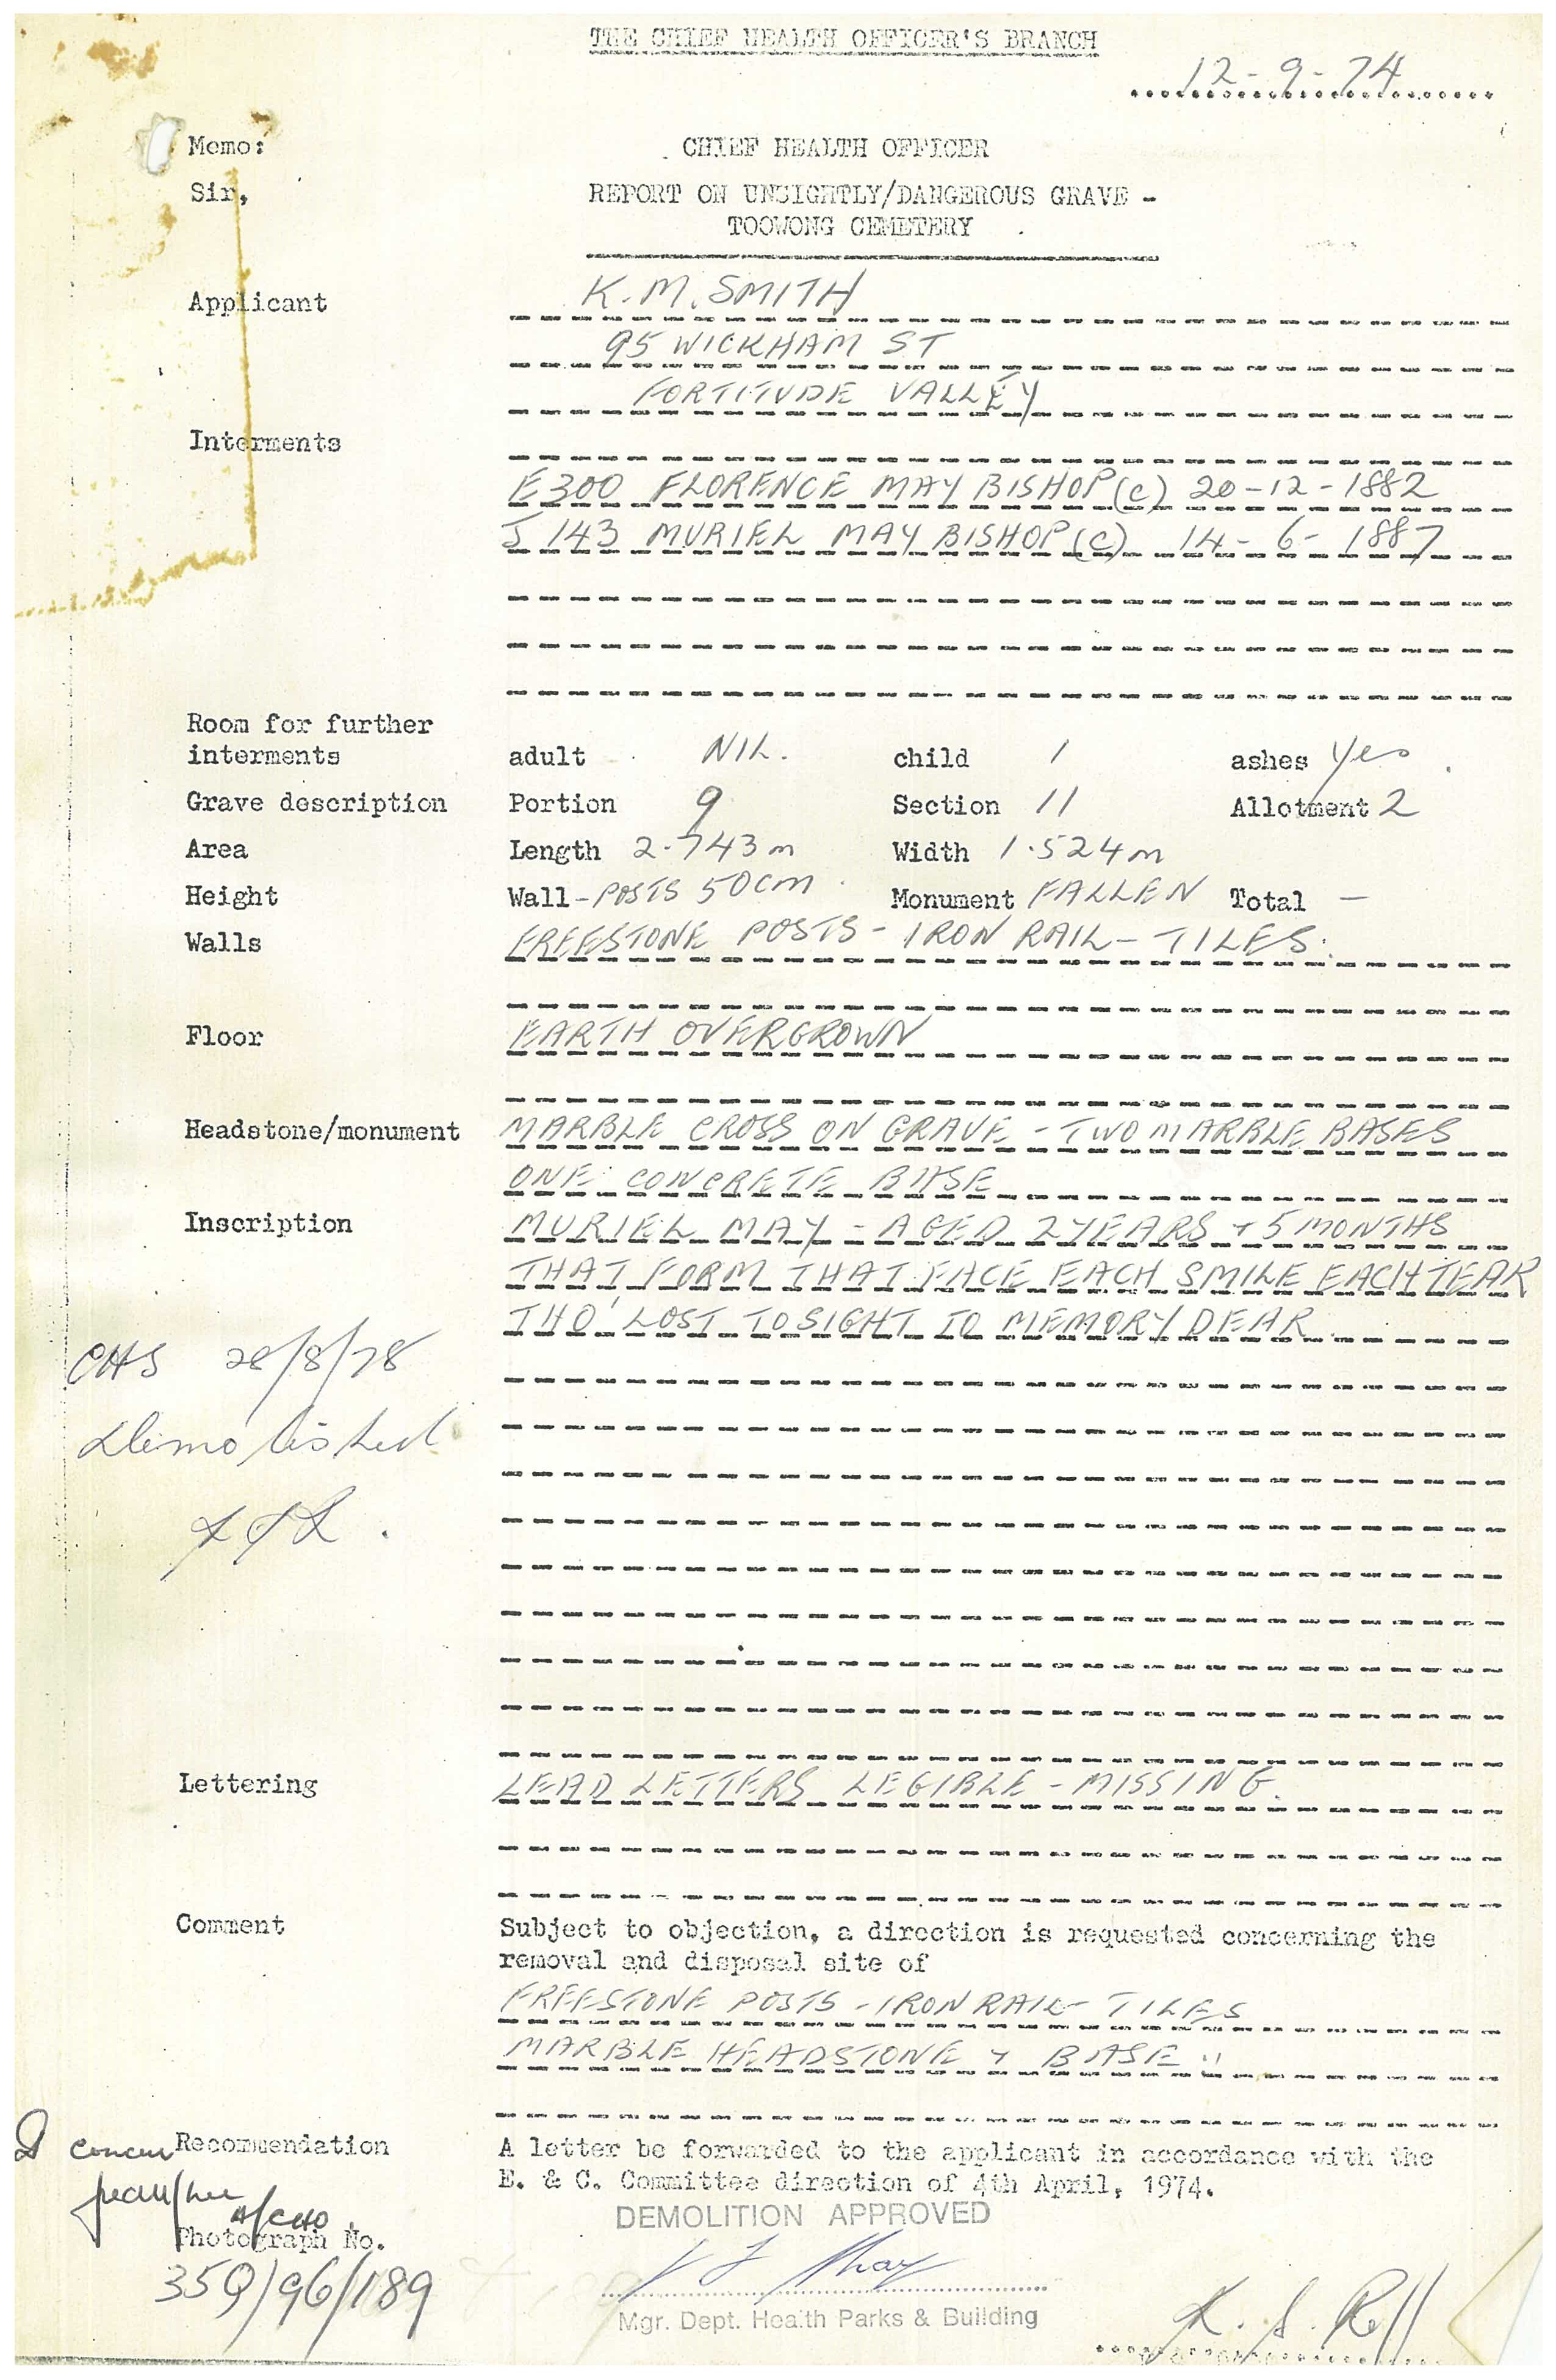 THE CHIEF HEALTH OFFICER'S BRANCH
12-9-74
Memo: CHIEF HEALTH OFFICER
Sir, REPORT ON UNSIGHTLY/DANGEROUS GRAVE -
TOOWONG CEMETERY
Applicant K.M. SMITH
95 WICKHAM ST
FORTITUDE VALLEY
Interments
E300 FLORENCE MAY BISHOP (C) 20-12-1882
J 143 MURIEL MAY BISHOP (C) 14-6-1887
Room for further
interments adult NIL. child 1 ashes yes
Grave description Portion 9 Section 11 Allotment 2
Area Length 2.743m Width 1.524m
Height Wall - POSTS 50cm Monument FALLEN Total -
Walls FREESTONE POSTS - IRON RAIL - TILES.
Floor EARTH OVERGROWN
Headstone/monument MARBLE CROSS ON GRAVE - TWO MARBLE BASES
ONE CONCRETE BASE
Inscription MURIEL MAY - AGED 2 YEARS + 5 MONTHS
THAT FORM THAT FACE EACH SMILE EACH TEAR
THO' LOST TO SIGHT TO MEMORY DEAR
CHS 28/8/78
Demolished
Lettering LEAD LETTERS LEGIBLE - MISSING.
Comment Subject to objection, a direction is requested concerning the
removal and disposal site of
FREESTONE POSTS - IRON RAIL - TILES
MARBLE HEADSTONE + BASE "
I concur
Recommendation A letter be forwarded to the applicant in accordance with the
E. & C. Committee direction of 4th April, 1974.
A/CHO
DEMOLITION APPROVED
Photograph No.
35Q/96/189
Mgr. Dept. Health Parks & Building